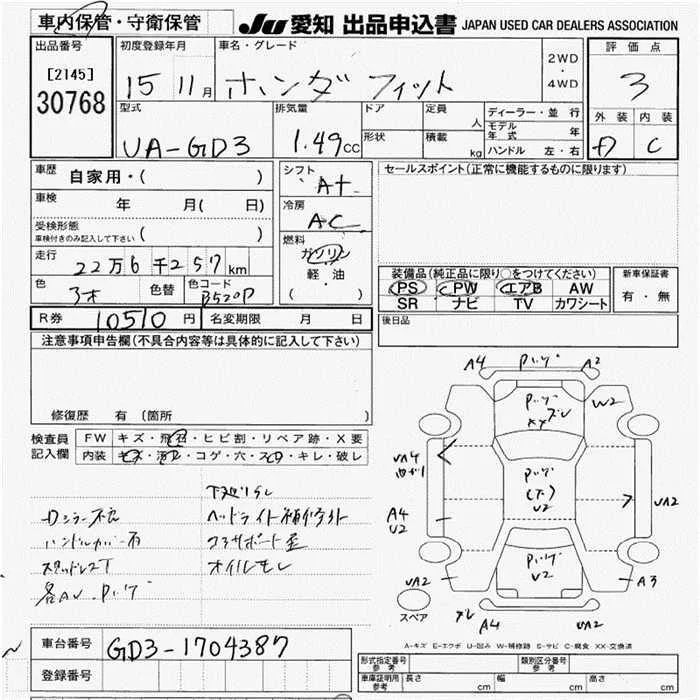 車内保管・守衛保管
JU 愛知 出品申込書 JAPAN USED CAR DEALERS ASSOCIATION
出品番号
[2145]
30768
初度登録年月
15 11月
車名・グレード
ホンダ フィット
2WD
・
4WD
評価点
3
外装 内装
D C
型式
UA-GD3
排気量
1.49cc
ドア
形状
定員 人
積載 kg
ディーラー・並行
モデル年式 年
ハンドル 左・右
車歴 自家用・( )
車検 年 月( 日)
受検形態
車検付きのみ記入して下さい ( )
走行 22万6千257km
色 色替 色コード
B520P
シフト
At
冷房
AC
燃料
ガソリン
・
軽・油
( )
セールスポイント(正常に機能するものに限ります)
装備品(純正品に限り○をつけてください)
PS PW エアB AW
SR ナビ TV カワシート
新車保証書
有・無
R券 10510円 名変期限 月 日
後日品
注意事項申告欄(不具合内容等は具体的に記入して下さい)
修復歴 有(箇所
検査員
記入欄
FW キズ・飛石・ヒビ割・リペア跡・X要
内装 キズ・汚れ・コゲ・穴・スレ・キレ・破レ
下廻りサビ
Dミラー不良
ヘッドライト補修外
ハンドルカバー有
コアサポート歪
スタッドレスT
オイルモレ
A4 A2
W2
UA4
曲がり
A4
U2
(下)
U2
UA2
U2
UA2
A3
スペア
A4
UA2
A-キズ E-エクボ U-凹み W-補修跡 S-サビ C-腐食 XX-交換済
車台番号 GD3-1704387
登録番号
形式指定番号
参考
類別区分番号
参考
車庫証明用
参考
長さ cm 幅 cm 高さ cm